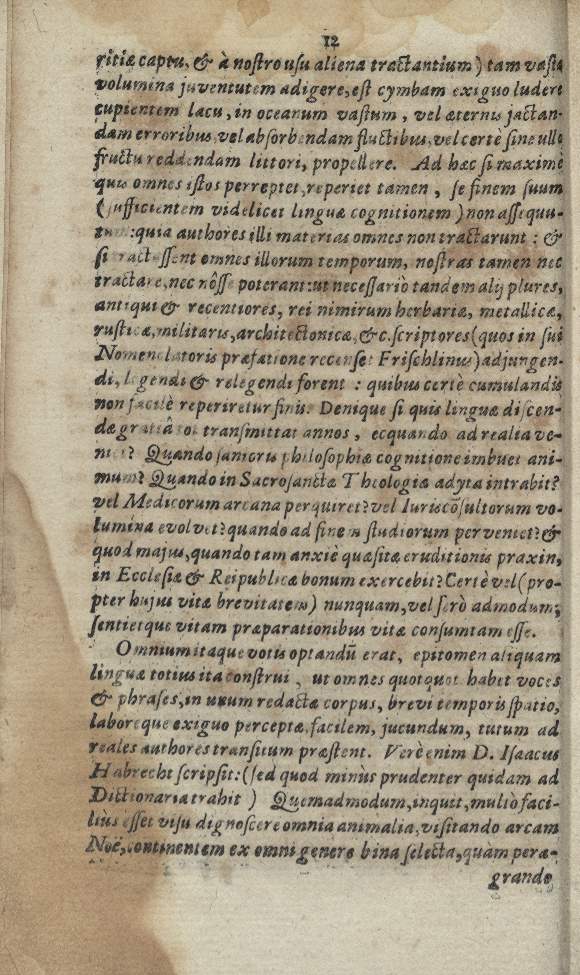 12
ritiæ captu, & à nostro usu aliena tractantium) tam vasta
volumina juventutem adigere, est cymbam exiguo ludere
cupientem lacu, in oceanum vastum, vel æternis jactan-
dam erroribus, vel absorbendam fluctibus, vel certè sine ullo
fructu reddendam littori, propellere. Ad hæc si maximè
quis omnes istos perreptet, reperiet tamen, se finem suum
(sufficientem videlicet linguæ cognitionem) non assequu-
tum: quia authores illi materias omnes non tractarunt: &
si tractassent omnes illorum temporum, nostras tamen nec
tractare, nec nôsse poterant: ut necessariò tandem alij plures,
antiqui & recentiores, rei nimirum herbariæ, metallicæ,
rusticæ, militaris, architectonicæ, &c. scriptores (quos in sui
Nomenclatoris præfatione recenset Frischlinus) adjungen-
di, legendi & relegendi forent: quibus certè cumulandis
non facilè reperiretur finis. Denique si quis linguæ discen-
dæ gratiâ tot transmittat annos, ecquando ad realia ve-
niet? Quando sanioris philosophiæ cognitione imbuet ani-
mum? Quando in Sacrosanctæ Theologiæ adyta intrabit?
vel Medicorum arcana perquiret? vel Iuriscõsultorum vo-
lumina evolvet? quando ad finem studiorum perveniet? &
quod majus, quando tam anxiè quæsitæ eruditionis praxin,
in Ecclesiæ & Reipublicæ bonum exercebit? Certè vel (pro-
pter hujus vitæ brevitatem) nunquam, vel serò admodum;
sentietque vitam præparationibus vitæ consumtam esse.
Omnium itaque votis optandũ erat, epitomen aliquam
linguæ totius ita construi, ut omnes quotquot habet voces
& phrases, in unum redactæ corpus, brevi temporis spatio,
laboreque exiguo perceptæ, facilem, jucundum, tutum ad
reales authores transitum præstent. Verè enim D. Isaacus
Habrecht scripsit: (sed quod minùs prudenter quidam ad
Dictionaria trahit) Quemadmodum, inquit, multò faci-
liùs esset visu dignoscere omnia animalia, visitando arcam
Noë, continentem ex omni genere bina selecta, quàm pera-
grando